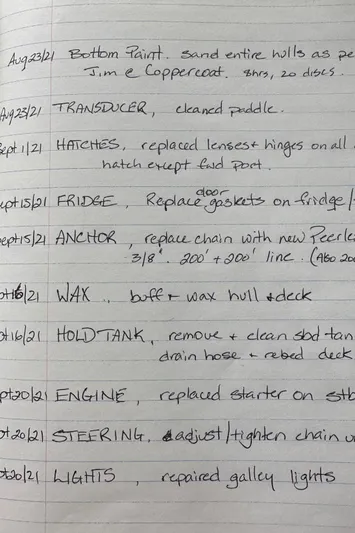 Aug23/21 Bottom Paint. sand entire hulls as pe
Jim @ Coppercoat. 8hrs, 20 discs.
Aug23/21 TRANSDUCER, cleaned paddle.
Sept 1/21 HATCHES, replaced lenses + hinges on all
hatch except fwd port.
ept15/21 FRIDGE, Replace door gaskets on fridge/
ept15/21 ANCHOR, replace chain with new Peerle
3/8". 200' + 200' line. (Also 20
pt16/21 WAX., buff + wax hull + deck
pt16/21 HOLD TANK, remove + clean sbd tan
drain hose + rebed deck
pt20/21 ENGINE, replaced starter on stb
pt20/21 STEERING, adjust/tighten chain
pt20/21 LIGHTS, repaired galley lights